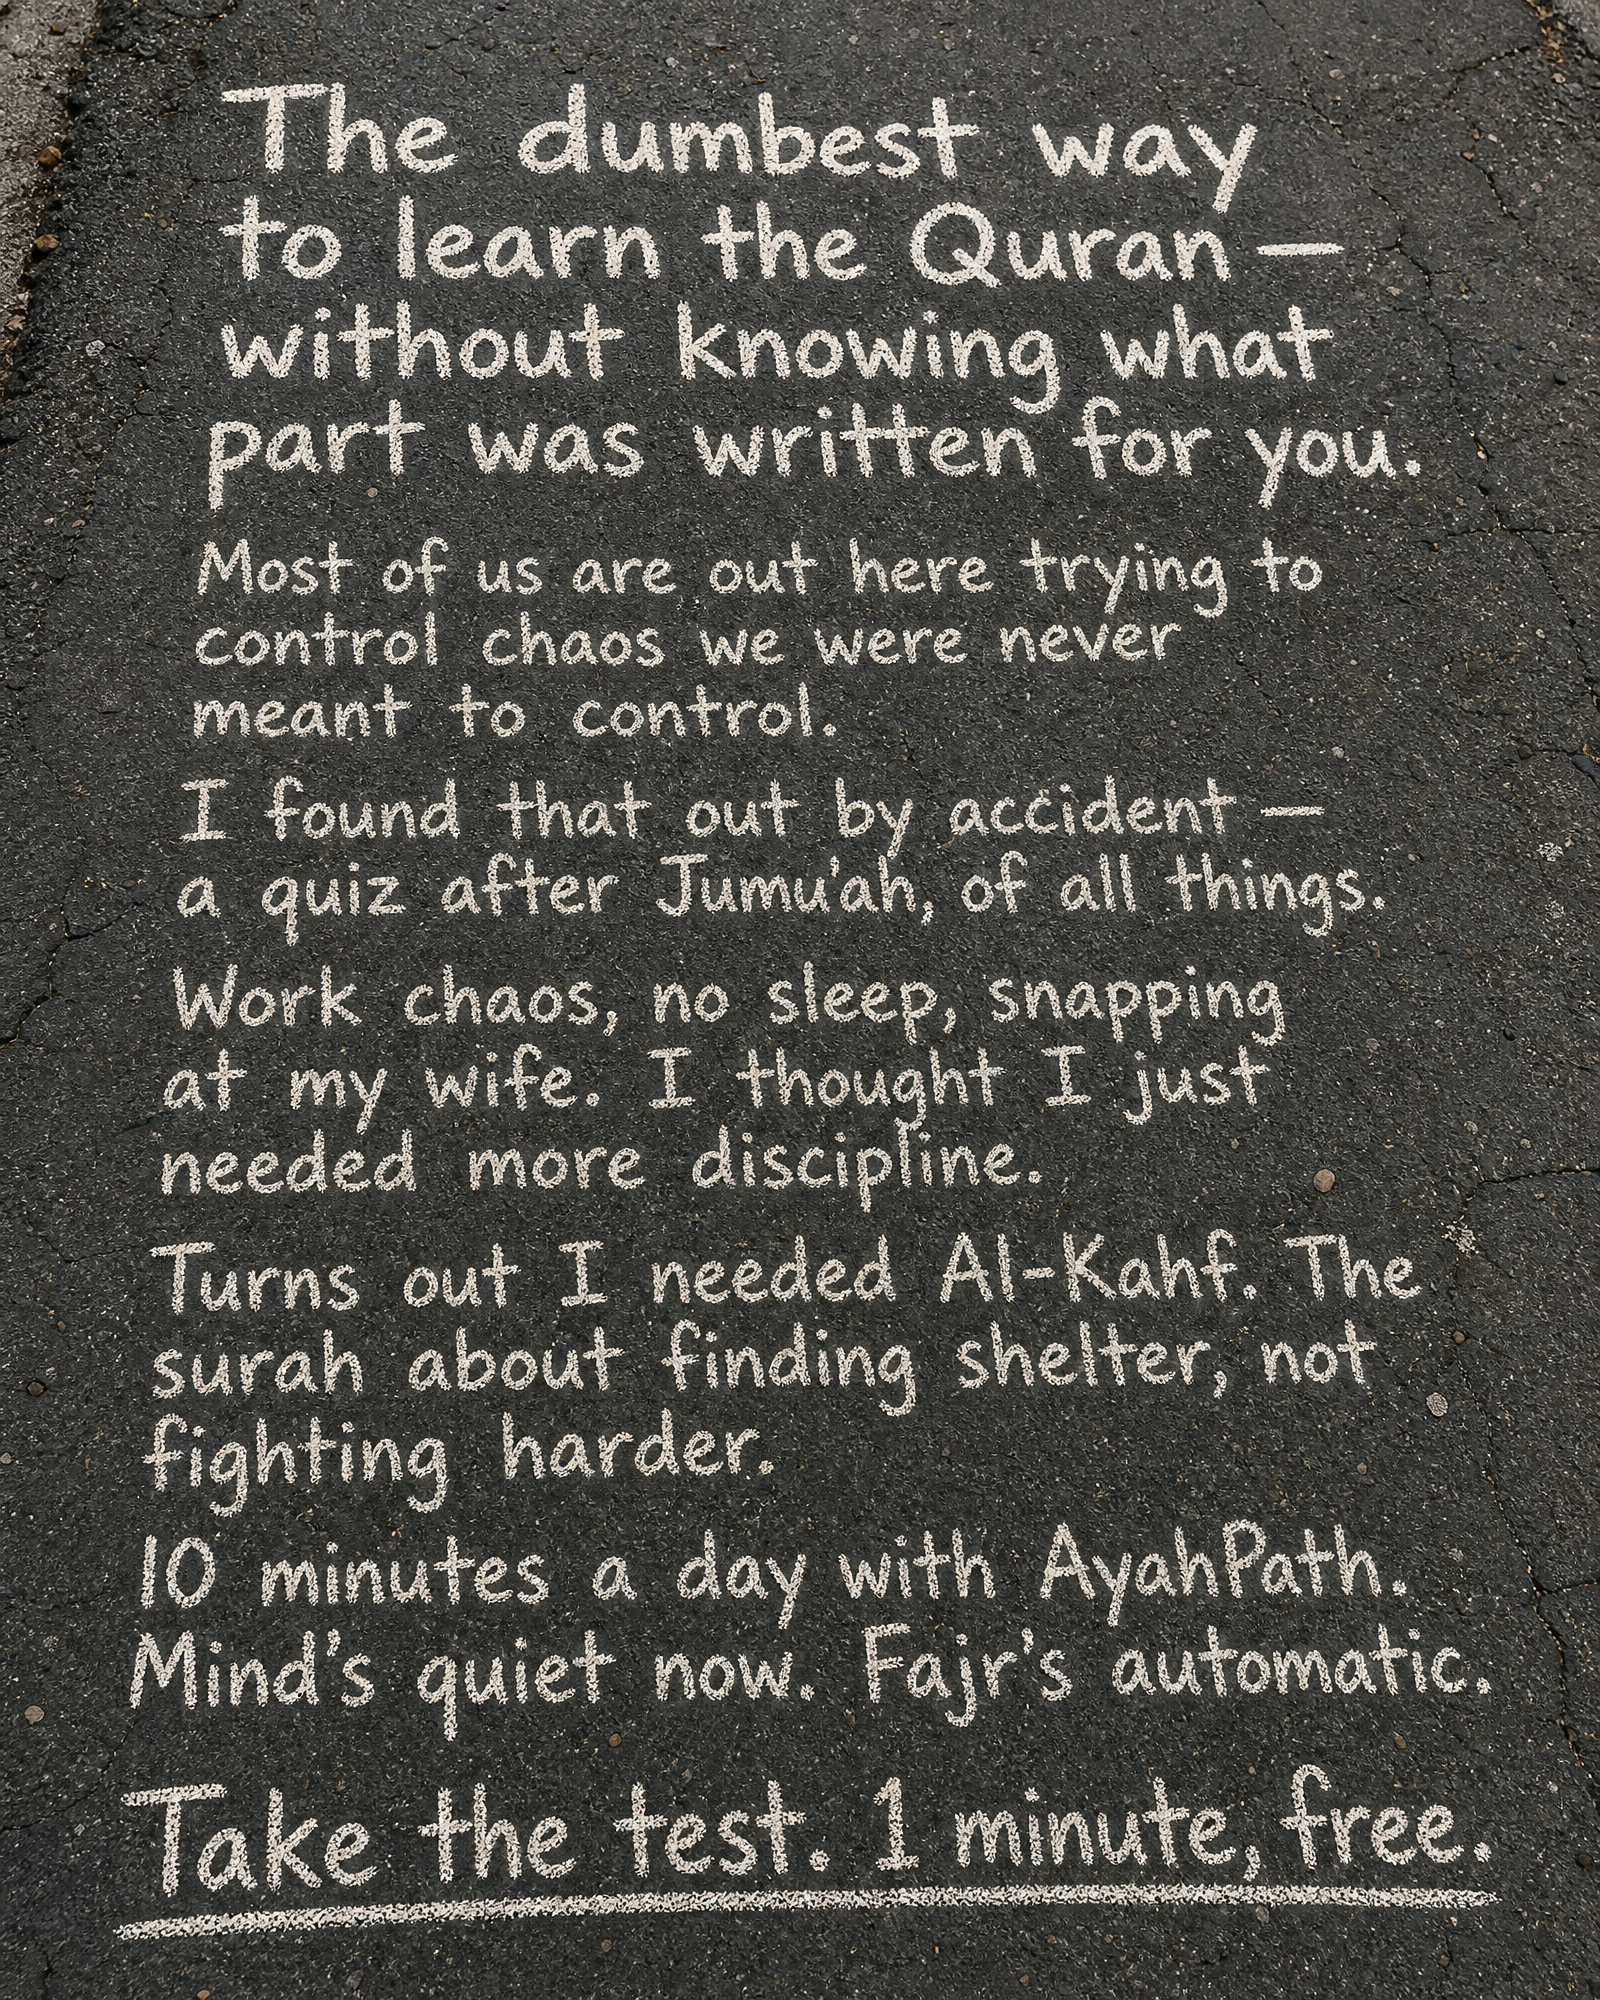 The dumbest way
to learn the Quran —
without knowing what
part was written for you.
Most of us are out here trying to
control chaos we were never
meant to control.
I found that out by accident —
a quiz after Jumu'ah, of all things.
Work chaos, no sleep, snapping
at my wife. I thought I just
needed more discipline.
Turns out I needed Al-Kahf. The
surah about finding shelter, not
fighting harder.
10 minutes a day with AyahPath.
Mind's quiet now. Fajr's automatic.
Take the test. 1 minute, free.